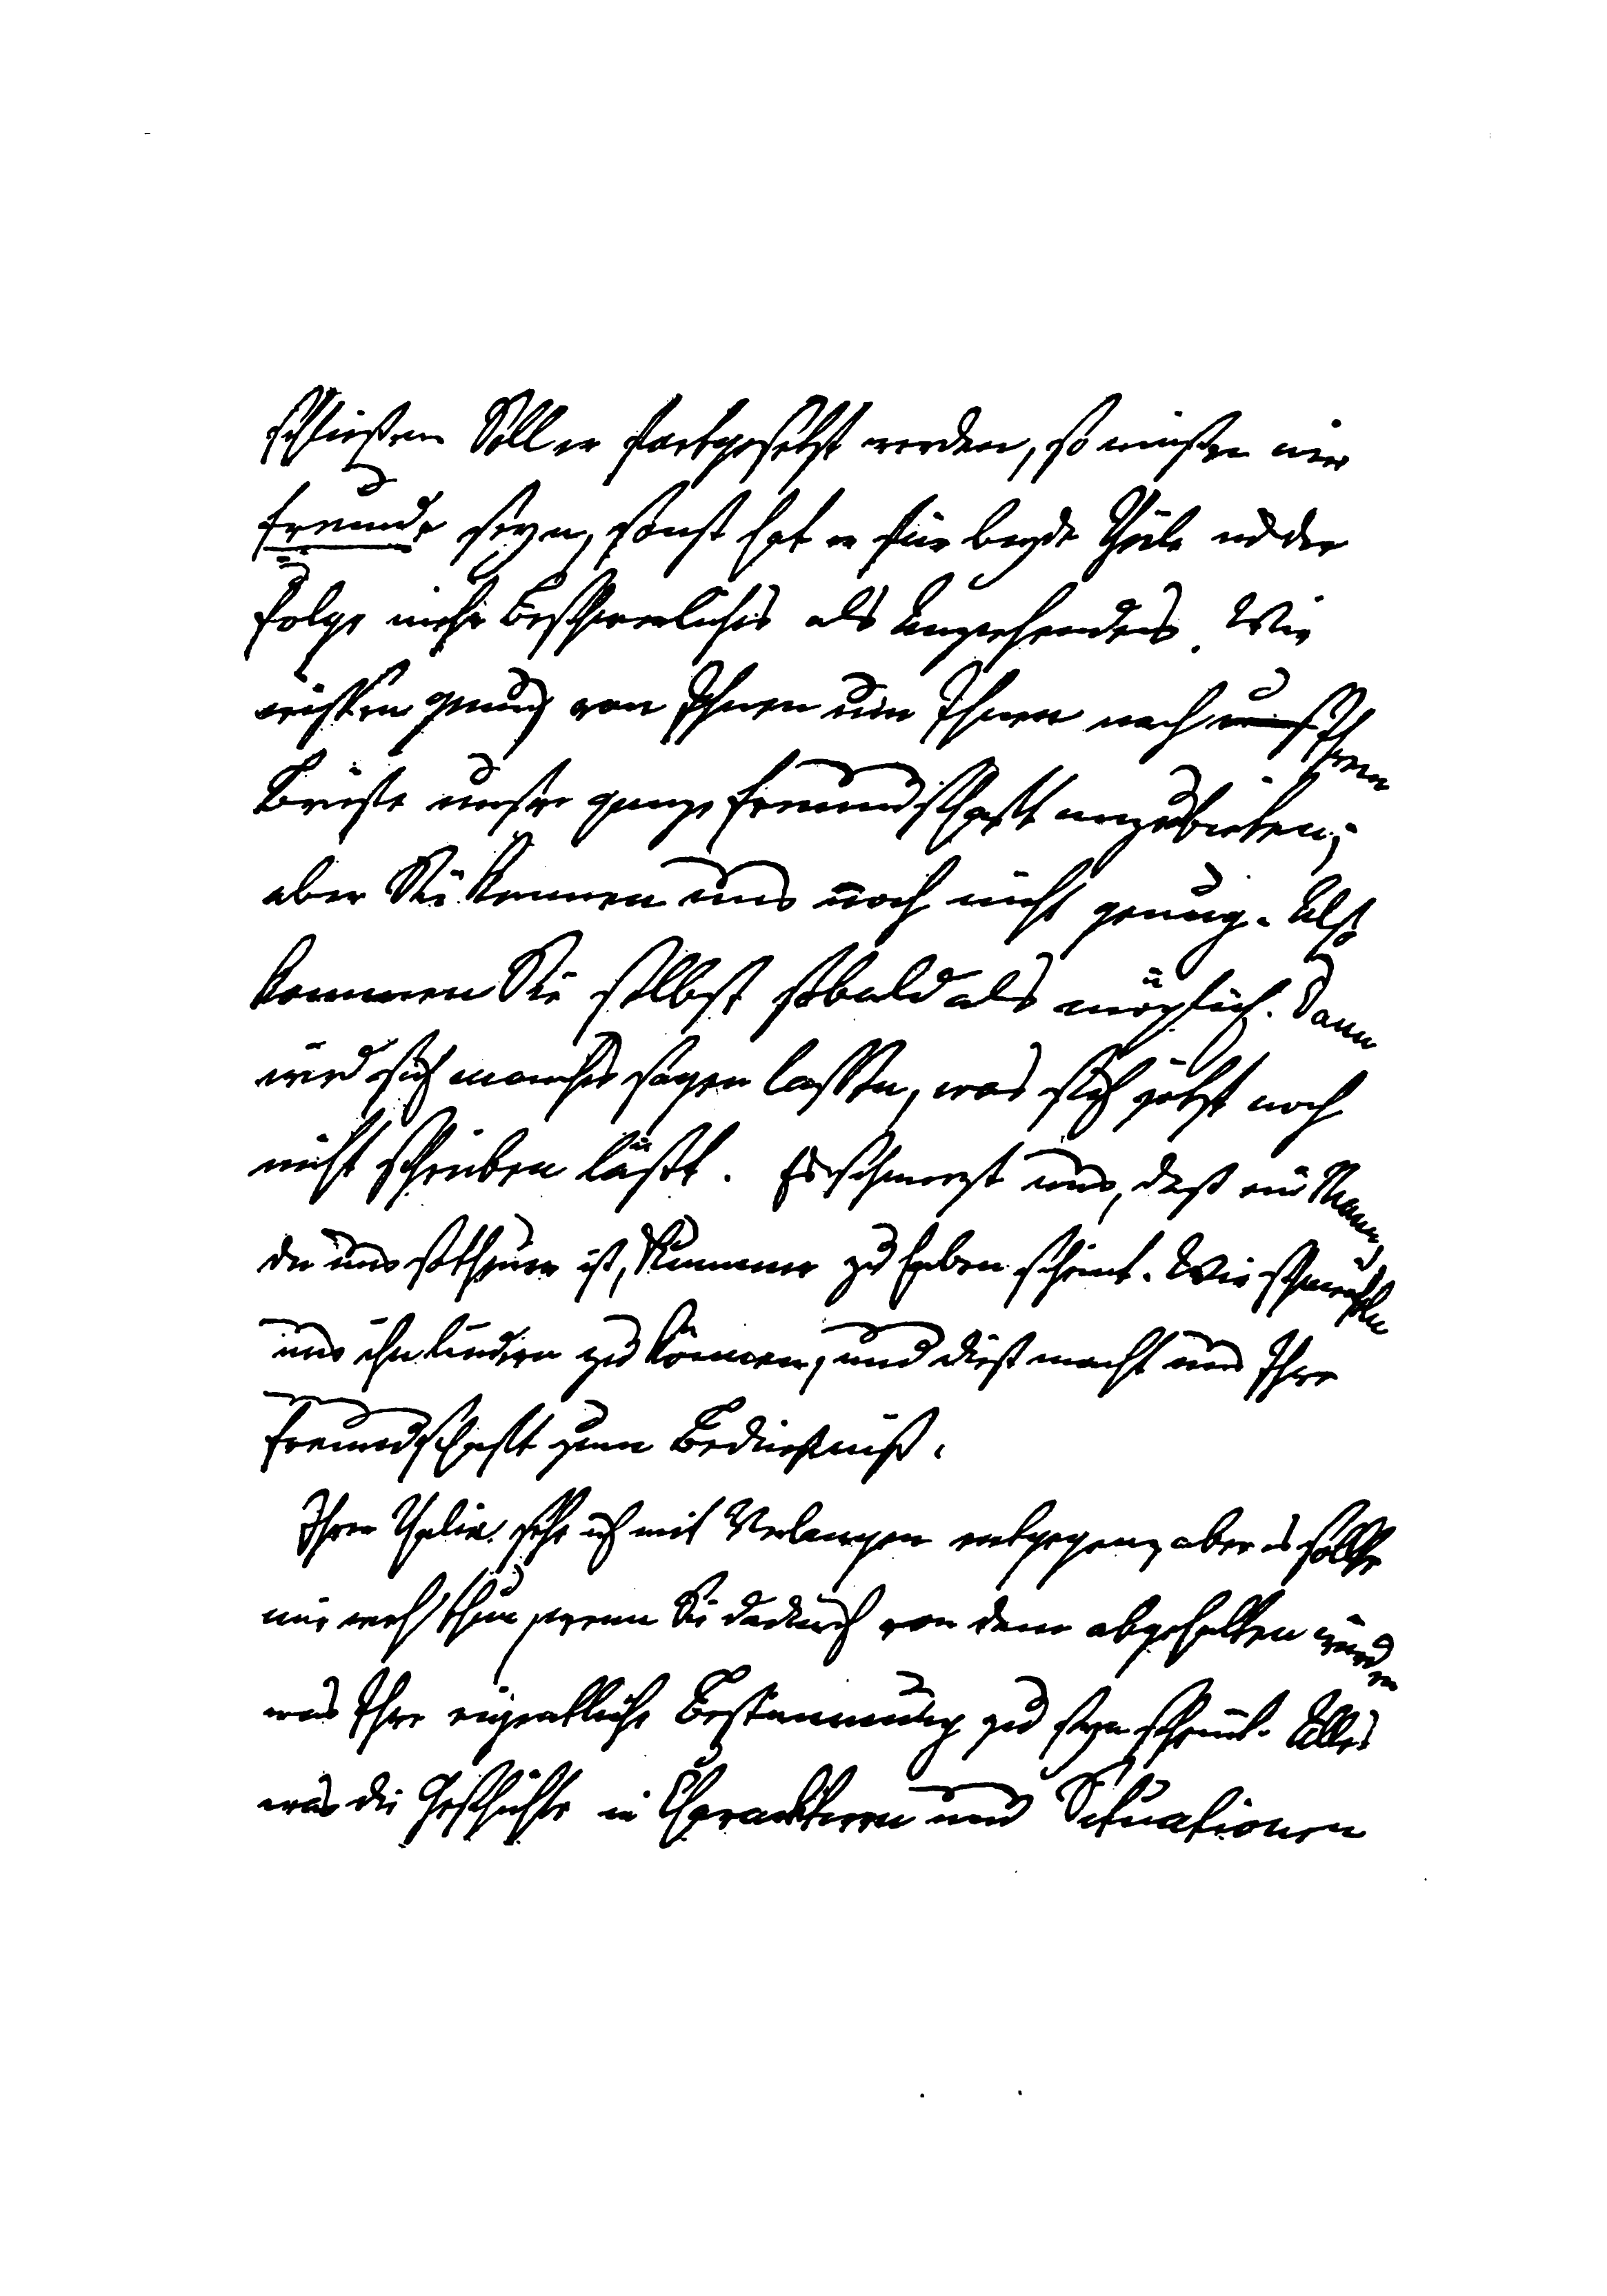 schließen. Soll er fortgesetzt werden, so müssen wir
Freunde seyn, sonst hat er für beyde Theile in der
Folge mehr Beschwerliches als Anziehendes. Wir
wissen genug von Ihnen um Ihnen nach Ihrem
Briefe unsre ganze Freundschaft anzubieten;
aber Sie kennen uns noch nicht genug. Also
kommen Sie selbst sobald als möglich. Dann
wird sich manches sagen lassen, was sich jetzt noch
nicht schreiben läßt. Es schmerzt uns, daß ein Mann,
der uns so theuer ist, Kummer zu haben scheint. Wir schmeicheln
uns ihn lindern zu können, und dieß macht uns Ihre
Freundschaft zum Bedürfniß.
Ihrer Thalia seh ich mit Verlangen entgegen, aber es sollte
mir weh thun, wenn Sie dadurch von dem abgehalten würden
was Ihre eigentliche Bestimmung zu seyn scheint. Alles
was die Geschichte in Charakteren und Situationen